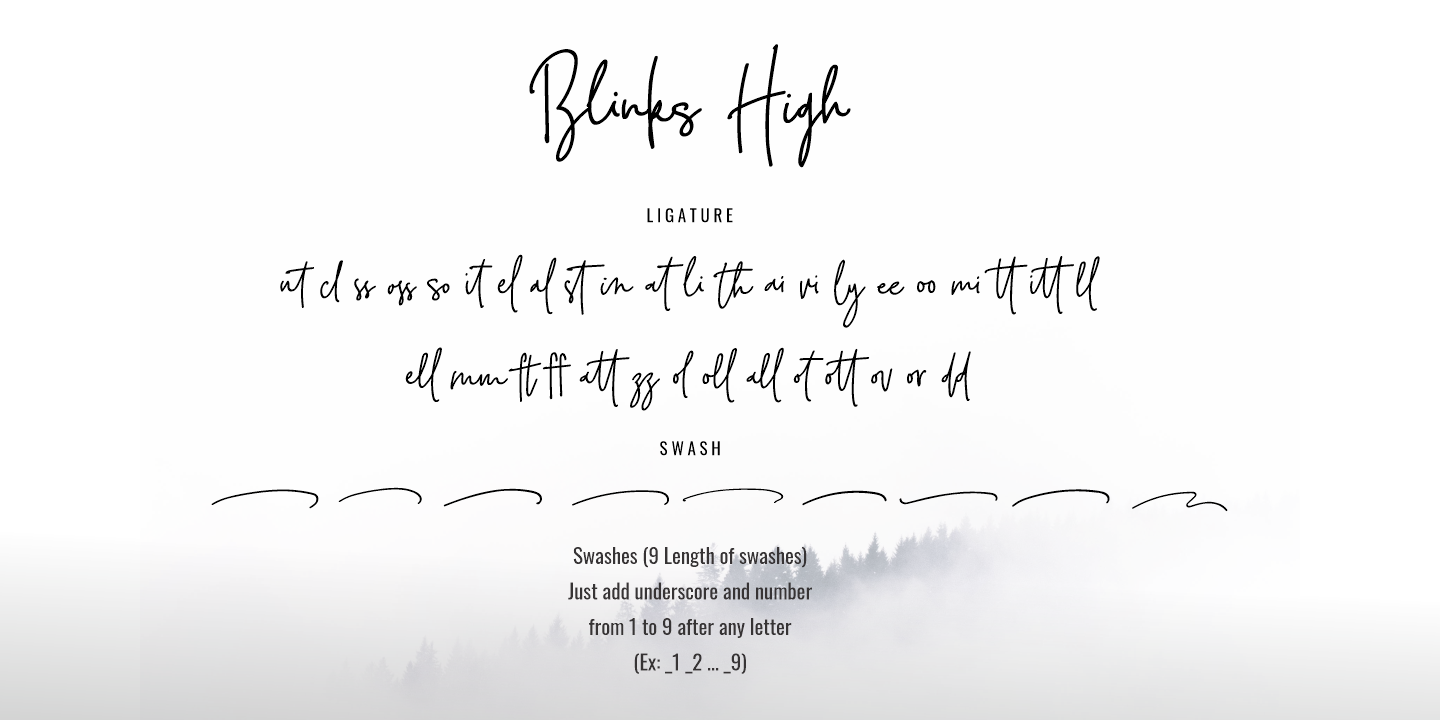 Blinks High
LIGATURE
at cl ss oss so it el al st in at li th ai vi ly ee oo mi tt itt ll
ell mm ft ff att zz ol oll all ot ott ov or dd
SWASH
Swashes (9 Length of swashes)
Just add underscore and number
from 1 to 9 after any letter
(Ex: _1 _2 ... _9)